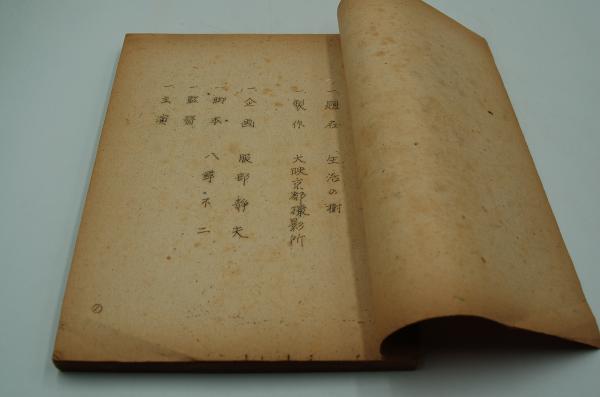 一題名 生活の樹
一製作 大映京都撮影所
一企画 服部静夫
一脚本 八尋不二
一監督
一主演